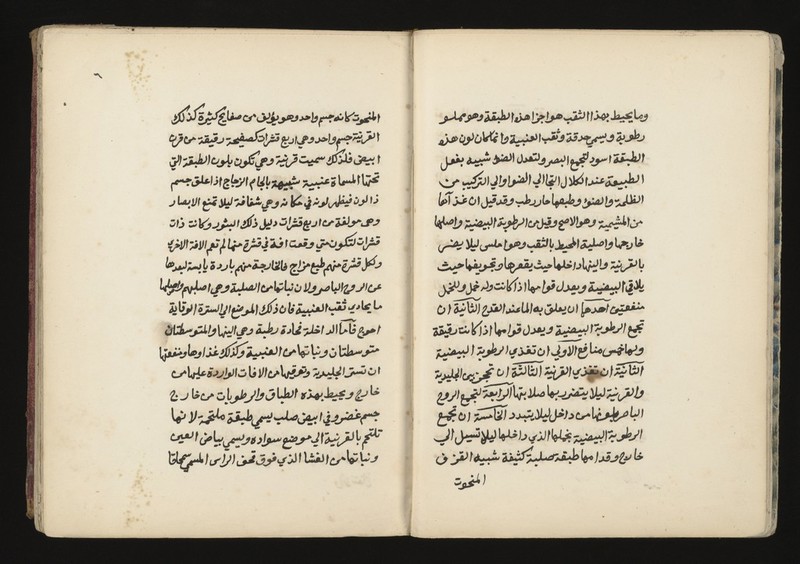 وما يحيط بهذا الثقب هو اجزا هذه الطبقة وهو مملو
رطوبة ويسمي حدقة وثقب العنبية وانما كان لون هذه
الطبقة اسود لتجمع البصر ولتعدل الضو شبيه بفعل
الطبيعة عند الكلال التجا الي الضوا والي التركيب من
الظلمة والضو وطبعها حار رطب وقد قيل ان غذآها
من المشيمية وهو الاصح وقيل من الرطوبة البيضية واصلها
خارجها واصلية المحيط بالثقب وهو املس ليلا يضر
بالقرنية والينها داخلها حيث يقعرها وتجويفها حيث
يلاقي البيضية ويعدل قوامها اذا كانت وله خمل وللخمل
منفعتين أحدهما ان يعلق به الما عند القدح الثانية ان
تجمع الرطوبة البيضية ويعدل قوامها اذا كانت رقيقة
ولها خمس منافع الاولي ان تغذي الرطوبة البيضية
الثانية ان تغذي القرنية الثالثة ان تحجز بين الجليدية
والقرنية ليلا يتضرر بها صلابتها الرابعة لتجمع الروح
الباصر من داخل ليلا يتبدد الخامسة ان تجمع
الرطوبة البيضية بخملها الذي داخلها ليلا تسيل الي
خارج وقدامها طبقة صلبة كثيفة شبيه القرن
المنحوت
المنحوت كانه جسم واحد وهو يؤلف من صفايح كثيرة كذلك
القرنية جسم واحد وهي اربع قشرات كصفيحة رقيقة من قرن
ابيض فلذلك سميت قرنية وهي تكون بلون الطبقة التي
تحتها المسماة عنبية شبيهة بالجام الزجاج اذا علق جسم
ذا لون فيظهر لونه في مكانه وهي شفافة ليلا تمنع الابصار
وهي مولفة من اربع قشرات دليل ذلك البثور وكانت ذات
قشرات لتكون متي وقعت افة في قشرة منها لم تعم الافة الاخري
ولكل قشرة منهم طبع مزاج فالخارجة منهم باردة يابسة لبعدها
عن الروح الباصر ولان نباتها من الصلبة وهي اصلبهم واصلبها
ما يحاذي ثقب العنبية فان ذلك الموضع الي السترة الوقاية
احوج فأما الداخلة فحادة رطبة وهي الينها والمتوسطتان
متوسطتان ونباتها من العنبية وكذلك غذاوها ومنفعتها
ان تستر الجليدية وتعرفيها من الافات الواردة عليها من
خارج ويحيط بهذه الطباق والرطوبات من خارج
جسم غضروفي ابيض صلب يسمي طبقة ملتحمة لانها
تلتحم بالقرنية الي موضع سواده ويسمي بياض العين
ونباتها من الغشا الذي فوق قحف الراس المسمي سمحاقا